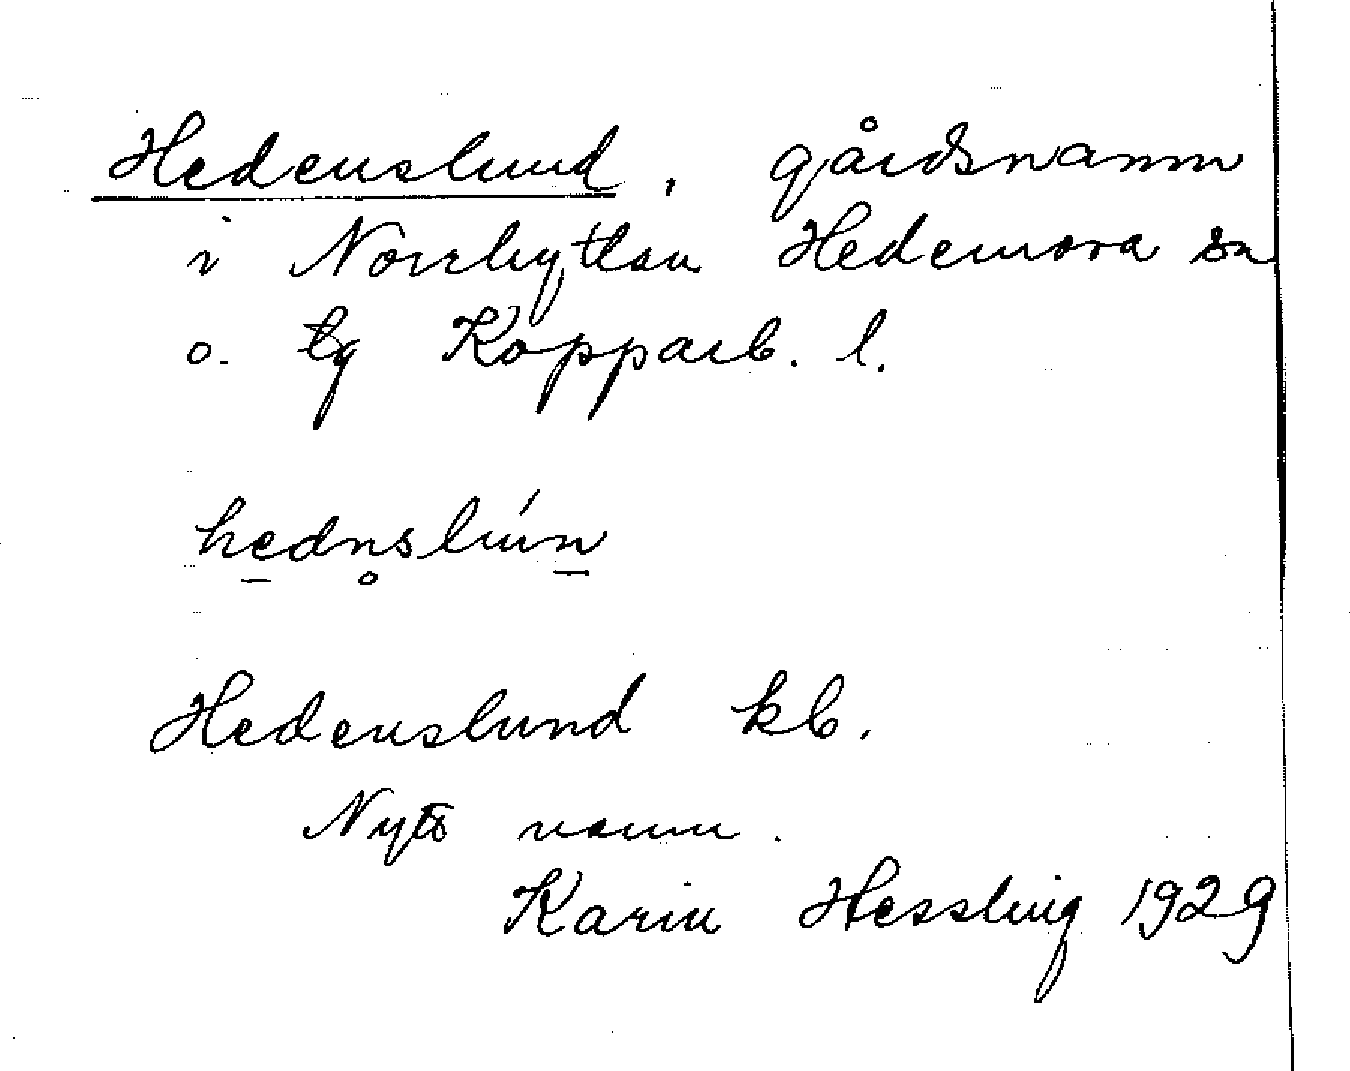 Hedenslund, gårdsnamn
i Norrhyttan Hedemora sn
o. tg Kopparb. l.
he̲dn̥slún̲
Hedenslund kb.
Nytt namn.
Karin Hessling 1929